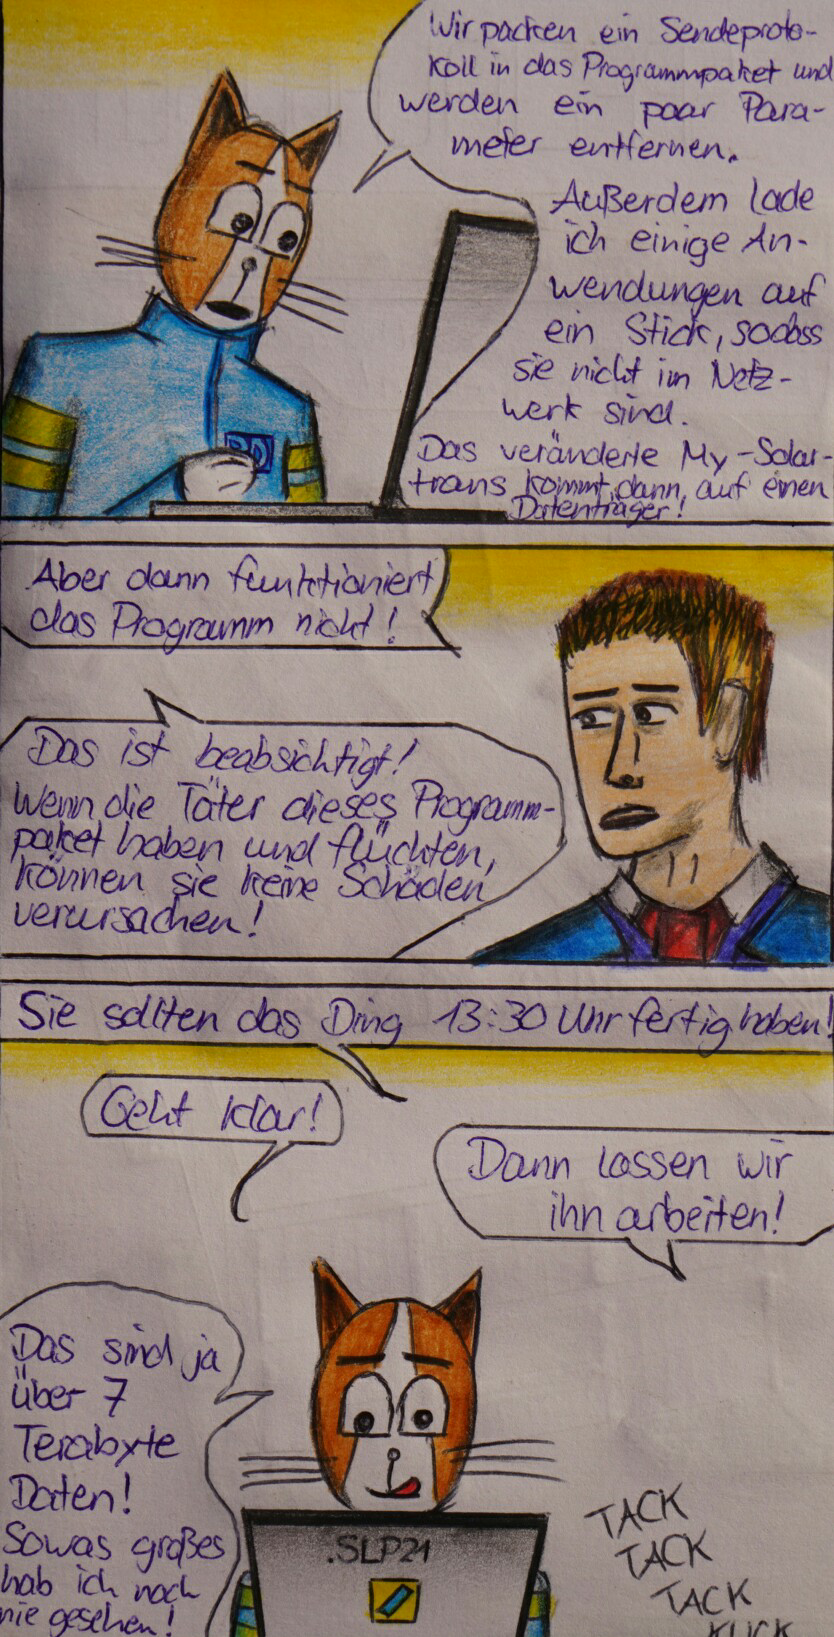 Wir packen ein Sendeproto-
koll in das Programmpaket und
werden ein paar Para-
meter entfernen.
Außerdem lade
ich einige An-
wendungen auf
ein Stick, sodass
sie nicht im Netz-
werk sind.
Das veränderte My-Solar-
trans kommt, dann, auf einen
Datenträger!
Aber dann funktioniert
das Programm nicht!
Das ist beabsichtigt!
Wenn die Täter dieses Programm-
paket haben und flüchten,
können sie keine Schäden
verursachen!
Sie sollten das Ding 13:30 Uhr fertig haben!
Geht klar!
Dann lassen wir
ihn arbeiten!
Das sind ja
über 7
Terabyte
Daten!
Sowas großes
hab ich noch
nie gesehen!
.SLP21
TACK
TACK
TACK
KLICK